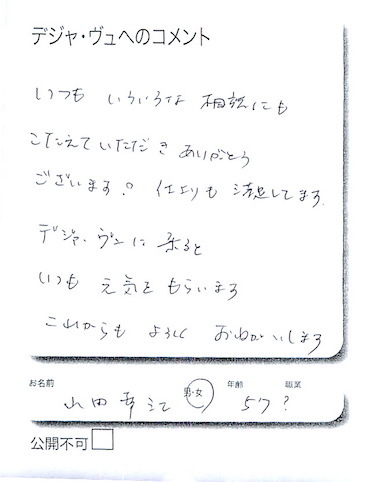 デジャ・ヴュへのコメント
いつも いろいろな 相談にも
こたえていただき ありがとう
ございます。 仕上りも 満足してます。
デジャ、ヴュに 来ると
いつも 元気を もらいます
これからも よろしく おねがいします
お名前 男・女 年齢 職業
山田 幸江 57 ?
公開不可